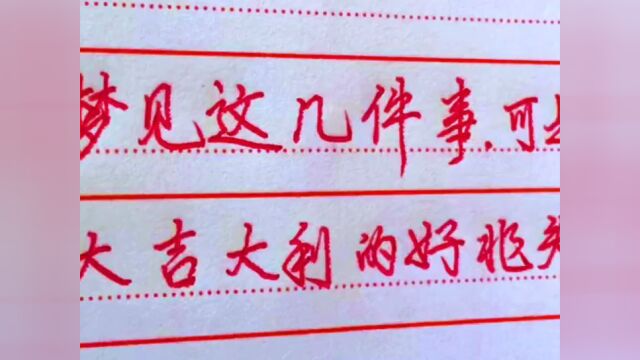 梦见这几件事,可
大吉大利的好兆